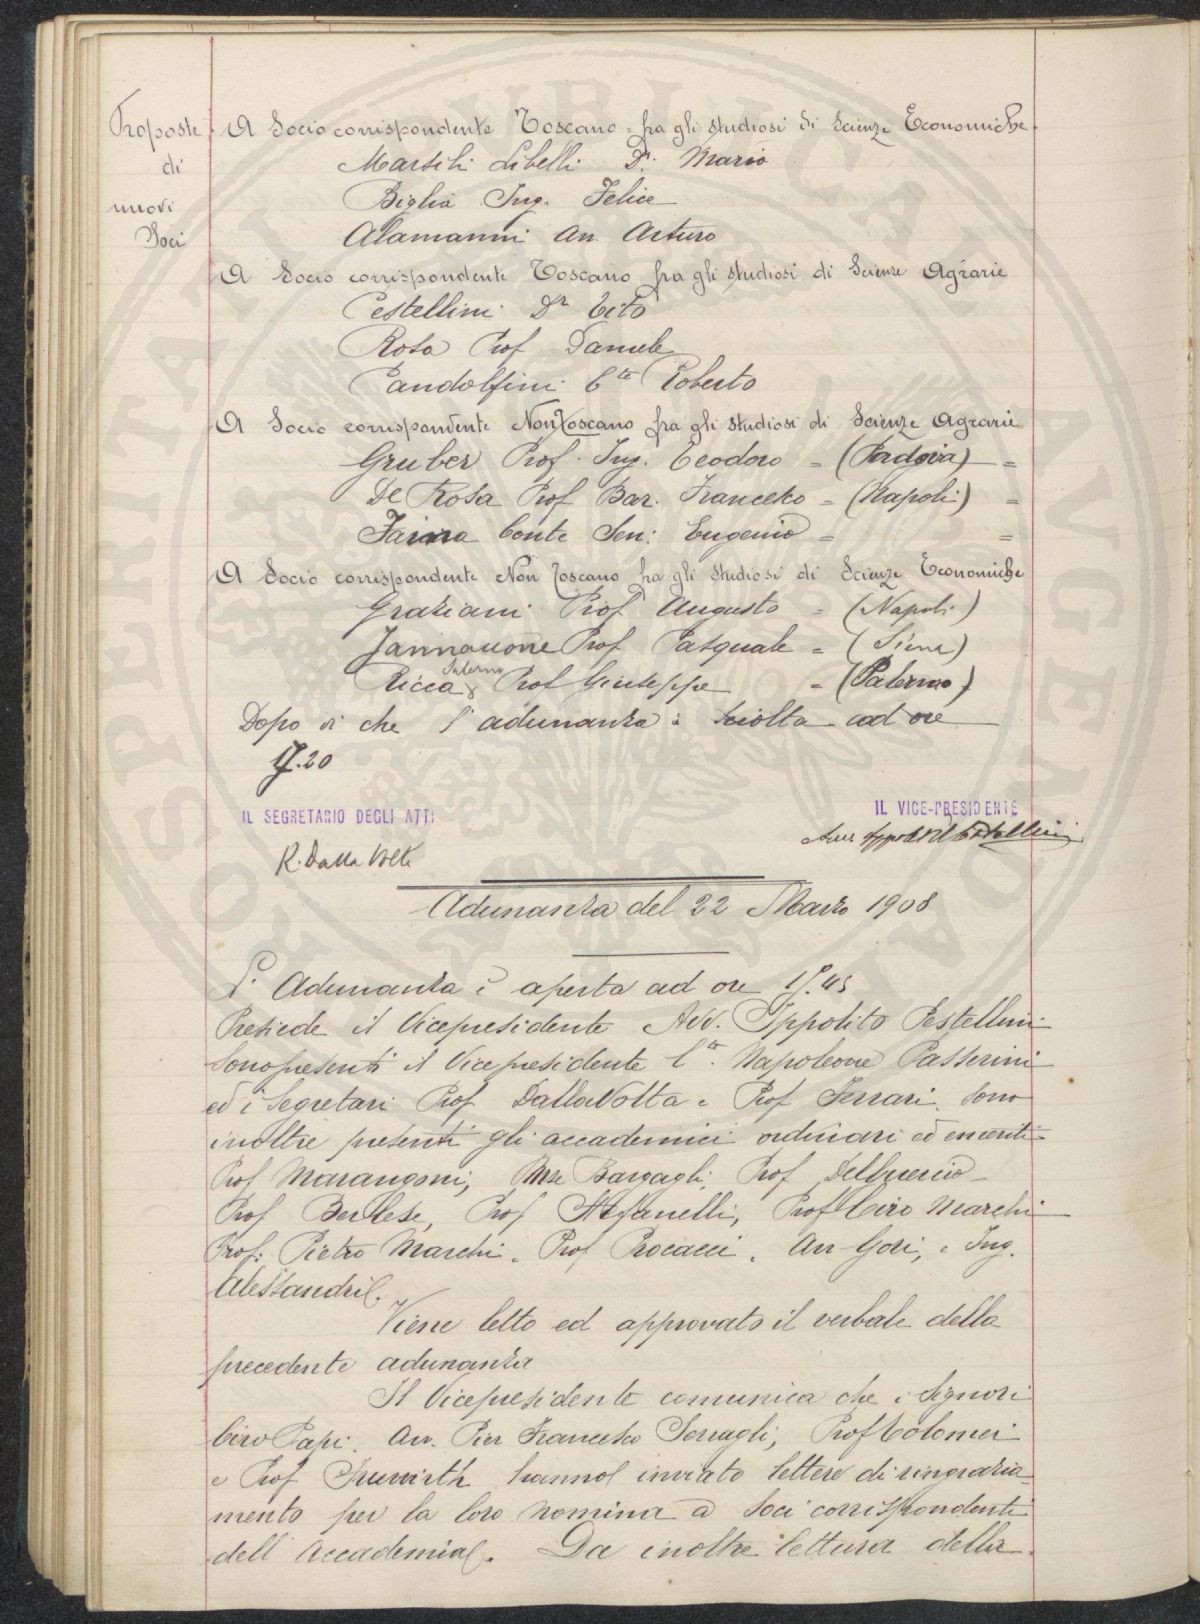 Proposte
di
nuovi
Soci
A Socio corrispondente Toscano = fra gli studiosi di Scienze Economiche.
Marsili Libelli Dr. Mario
Biglia Ing. Felice
Alamanni Avv. Arturo
A Socio corrispondente Toscano fra gli studiosi di Scienze Agrarie
Pestellini Dr Tito
Rosa Prof Daniele
Pandolfini Cte Roberto
A Socio corrispondente Non Toscano fra gli studiosi di Scienze Agrarie
Gruber Prof. Ing. Teodoro = (Padova) =
De Rosa Prof Bar. Francesco = (Napoli) =
Faina Conte Sen: Eugenio = =
A Socio corrispondente Non Toscano fra gli studiosi di Scienze Economiche
Graziani Prof Augusto = (Napoli)
Jannaccone Prof Pasquale = (Siena)
Ricca Salerno Prof Giuseppe = (Palermo)
Dopo di che l'adunanza è sciolta ad ore
17.20
IL SEGRETARIO DEGLI ATTI
IL VICE-PRESIDENTE
R. Dalla Volta
Avv Ippolito Pestellini
Adunanza del 22 Marzo 1908
L' Adunanza è aperta ad ore 15.45
Presiede il Vicepresidente Avv. Ippolito Pestellini
Sono presenti il Vicepresidente Cte. Napoleone Passerini
ed i Segretari Prof Dalla Volta e Prof Ferrari. Sono
inoltre presenti gli accademici ordinari ed emeriti =
Prof Marangoni, Mse Bargagli, Prof Del Guercio
Prof Berlese, Prof Stefanelli, Prof Ciro Marchi
Prof. Pietro Marchi, Prof Procacci, Avv Gori, e Ing.
Alessandri.
Viene letto ed approvato il verbale della
precedente adunanza
Il Vicepresidente comunica che i Signori
Ciro Papi, Avv. Pier Francesco Serragli, Prof Tolomei
e Prof Fruwirth hanno inviato lettere di ringrazia=
mento per la loro nomina a Soci corrispondenti
dell'Accademia. Da inoltre lettura della